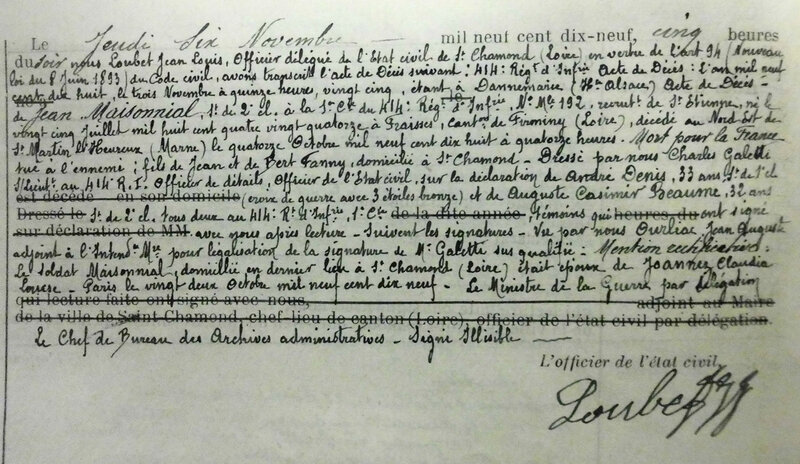 Le Jeudi Six Novembre mil neuf cent dix-neuf, cinq heures
du soir nous Loubet Jean Louis, Officier délégué de l'Etat civil de St Chamond (Loire) en vertu de l'art 94 (Nouveau
loi du 8 Juin 1893) du Code civil, avons transcrit l'acte de Décès suivant: 414: Régt d'Infrie Acte de Décès: L'an mil neuf
cent dix huit, le trois Novembre à quinze heures, vingt cinq, étant à Dannemarie (Hte Alsace) Acte de Décès
de Jean Maisonnial, St de 2e cl. à la 1re Cie du 414: Régt d'Infrie, No Mle 192, recrutt de St Etienne, né le
vingt cinq Juillet mil huit cent quatre vingt quatorze à Fraisses, canton de Firminy (Loire), décédé au Nord Est de
St Martin l'Heureux (Marne) le quatorze Octobre mil neuf cent dix huit à quatorze heures. Mort pour la France
tué à l'ennemi; fils de Jean et de Fanny, domicilié à St Chamond - Dressé par nous Charles Galette
S/Lieutt au 414e R.I. Officier de détails, Officier de l'Etat civil, sur la déclaration de André Denis, 33 ans St de 1e cl
est décédé en son domicile (croix de guerre avec 3 étoiles bronze) et de Auguste Casimir Beaume, 32 ans
Dressé le St de 2e cl., tous deux au 414: Rt d'Infrie, 1re Cie de la dite année, témoins qui heures, du ont signé
sur déclaration de MM. avec nous après lecture - Suivent les signatures - Vu par nous Ourliac Jean Auguste
adjoint à l'Intendce Mre pour légalisation de la signature de Mr Galette sus qualifié - Mention rectification:
Le soldat Maisonnial, domicilié en dernier lieu à St Chamond (Loire) était époux de Joannez Claudia
- Paris le vingt deux Octobre mil neuf cent dix neuf - Le Ministre de la Guerre par délégation
qui lecture faite ont signé avec nous, adjoint au Maire
de la ville de Saint-Chamond, chef-lieu de canton (Loire), officier de l'état civil par délégation.
Le Chef de Bureau des Archives administratives - Signé Illisible
L'officier de l'état civil,
Loubet